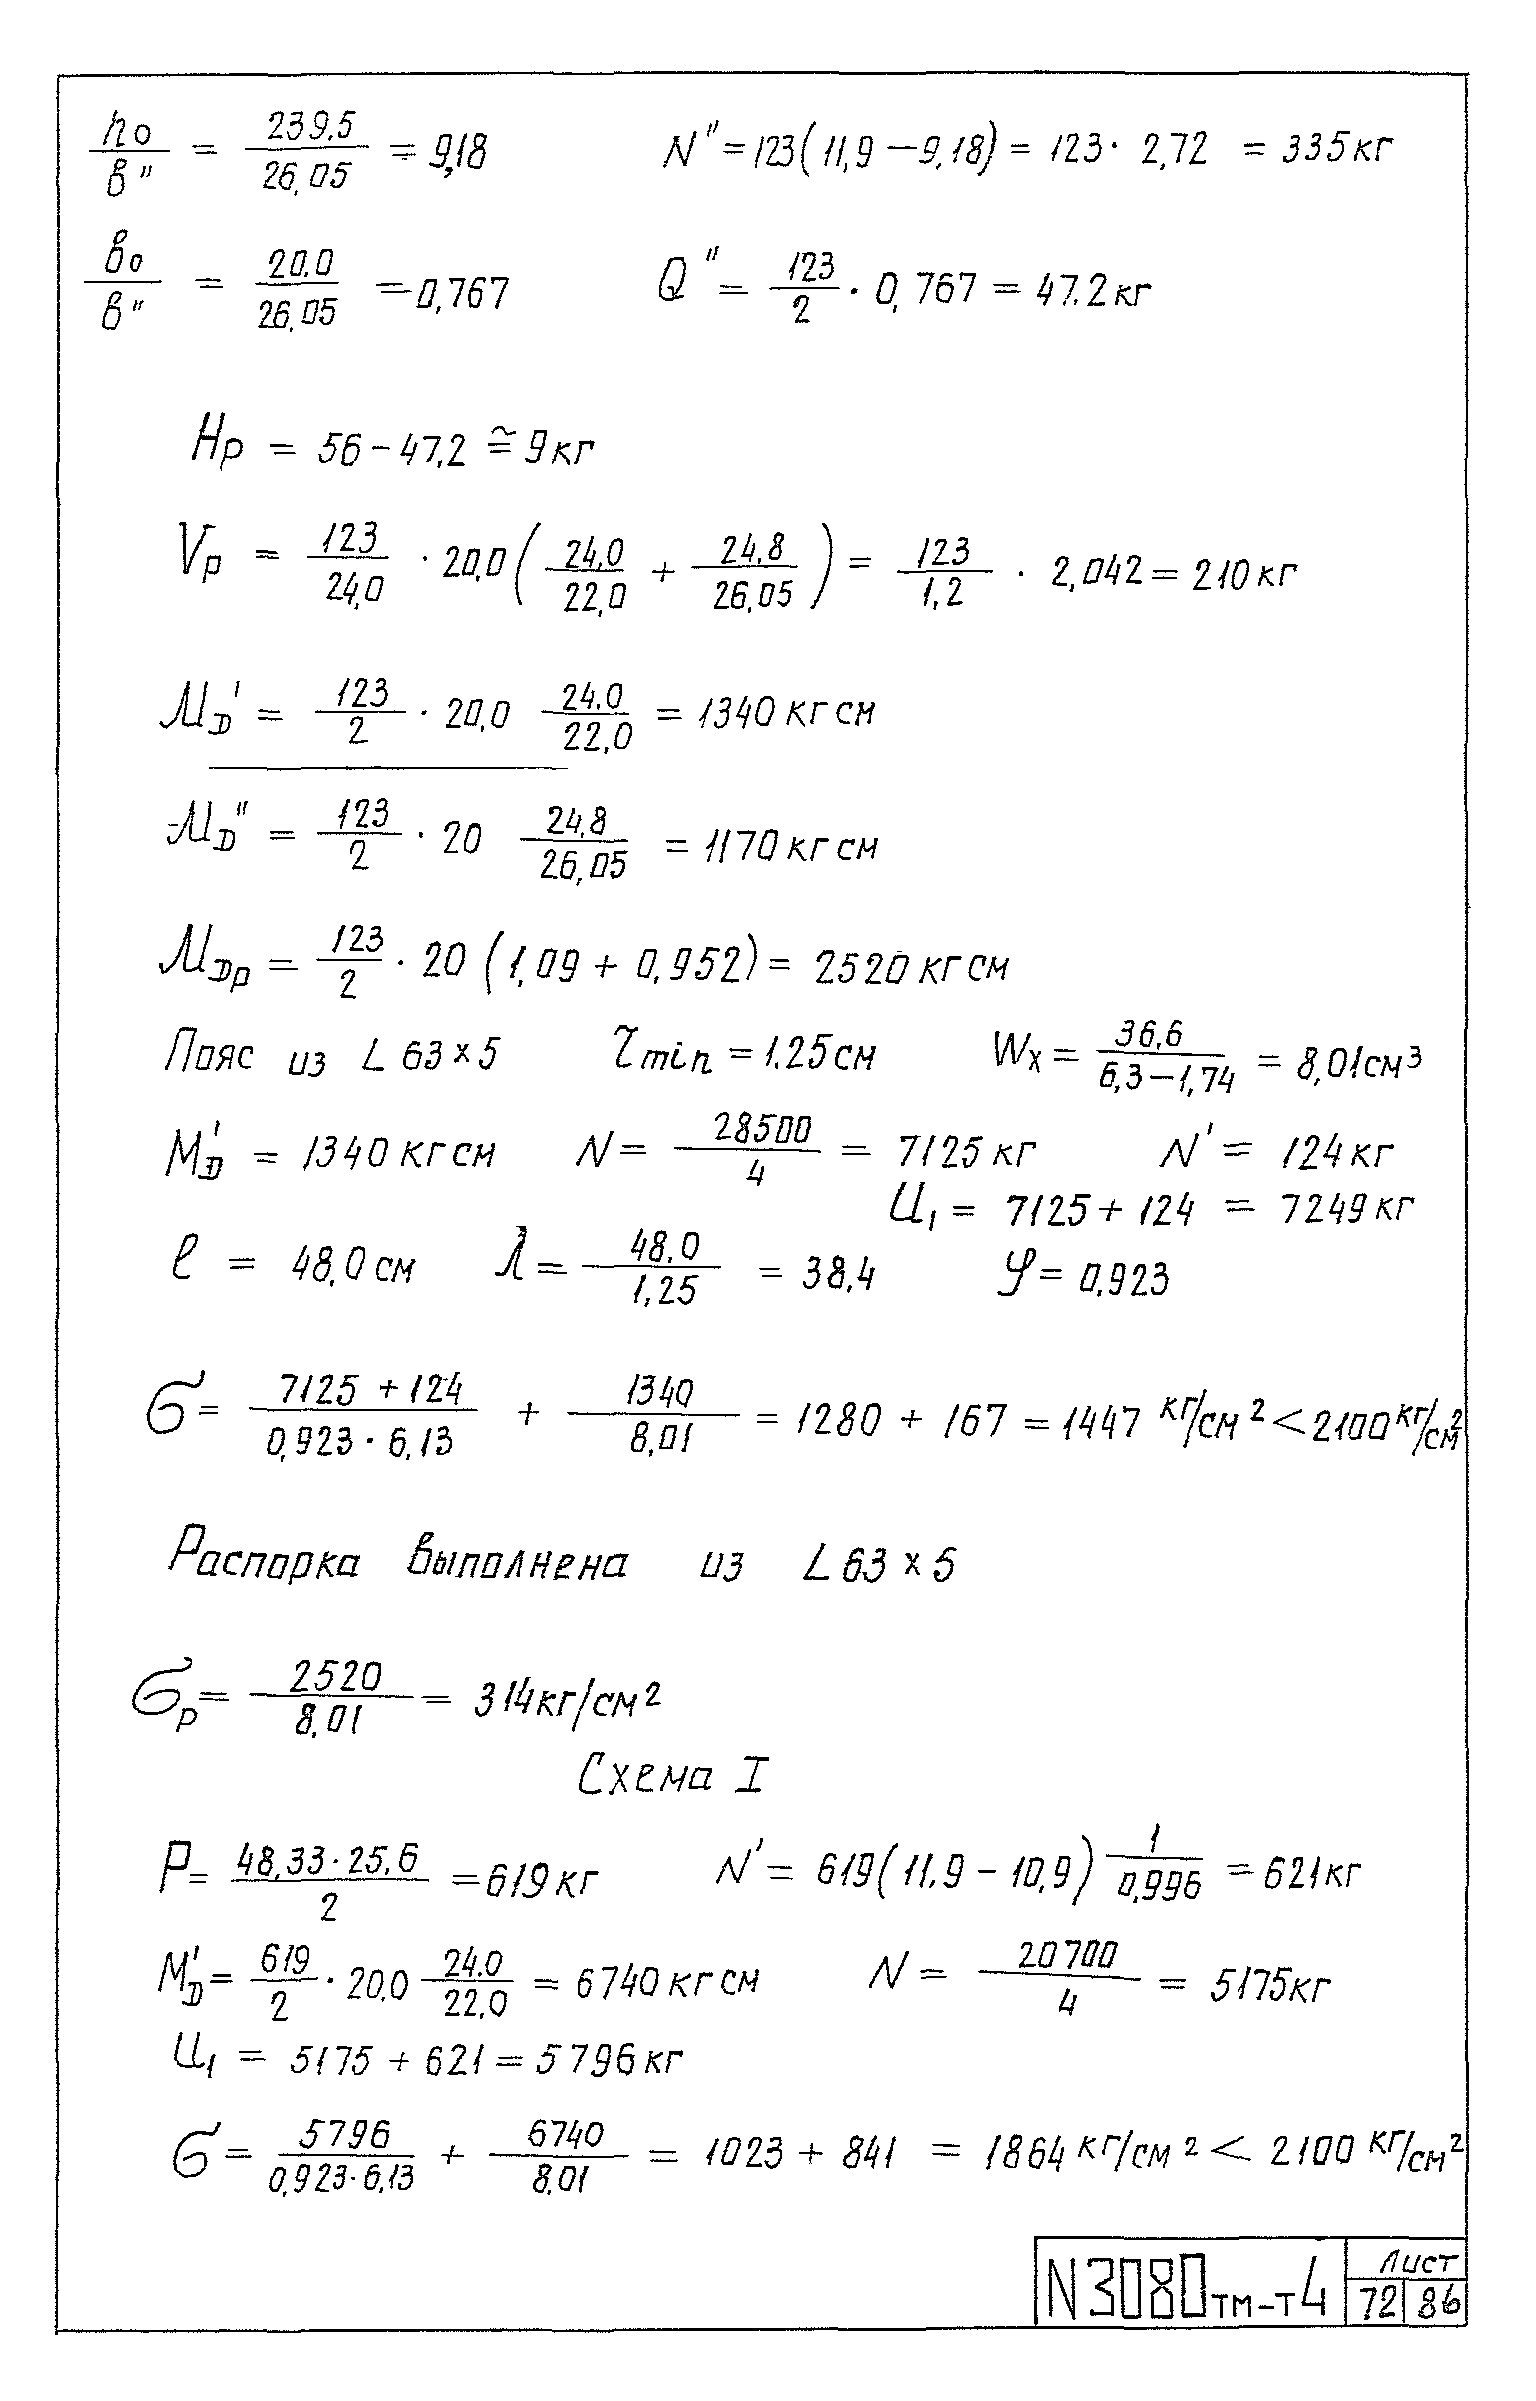 h₀/в" = 239.5/26,05 = 9,18    N" = 123(11,9 − 9,18) = 123 · 2,72 = 335 кг
в₀/в" = 20.0/26,05 = 0,767    Q" = 123/2 · 0,767 = 47.2 кг
Hр = 56 − 47,2 ≅ 9 кг
Vр = 123/24,0 · 20,0 (24,0/22,0 + 24,8/26,05) = 123/1,2 · 2,042 = 210 кг
M_D' = 123/2 · 20,0 24,0/22,0 = 1340 кг см
M_D" = 123/2 · 20 24,8/26,05 = 1170 кг см
M_Dp = 123/2 · 20 (1,09 + 0,952) = 2520 кг см
Пояс из L 63×5    τmin = 1.25 см    Wx = 36,6/6,3−1,74 = 8,01 см³
M_D' = 1340 кг см    N = 28500/4 = 7125 кг    N' = 124 кг
U₁ = 7125 + 124 = 7249 кг
ℓ = 48,0 см    λ = 48,0/1,25 = 38,4    φ = 0,923
σ = 7125 + 124/0,923 · 6,13 + 1340/8,01 = 1280 + 167 = 1447 кг/см² < 2100 кг/см²
Распорка выполнена из L 63×5
σр = 2520/8,01 = 314 кг/см²
Схема I
P = 48,33 · 25,6/2 = 619 кг    N' = 619(11,9 − 10,9) 1/0,996 = 621 кг
M_D' = 619/2 · 20,0 24.0/22.0 = 6740 кг см    N = 20700/4 = 5175 кг
U₁ = 5175 + 621 = 5796 кг
σ = 5796/0,923 · 6,13 + 6740/8,01 = 1023 + 841 = 1864 кг/см² < 2100 кг/см²
N3080тм-т4
Лист
72 86